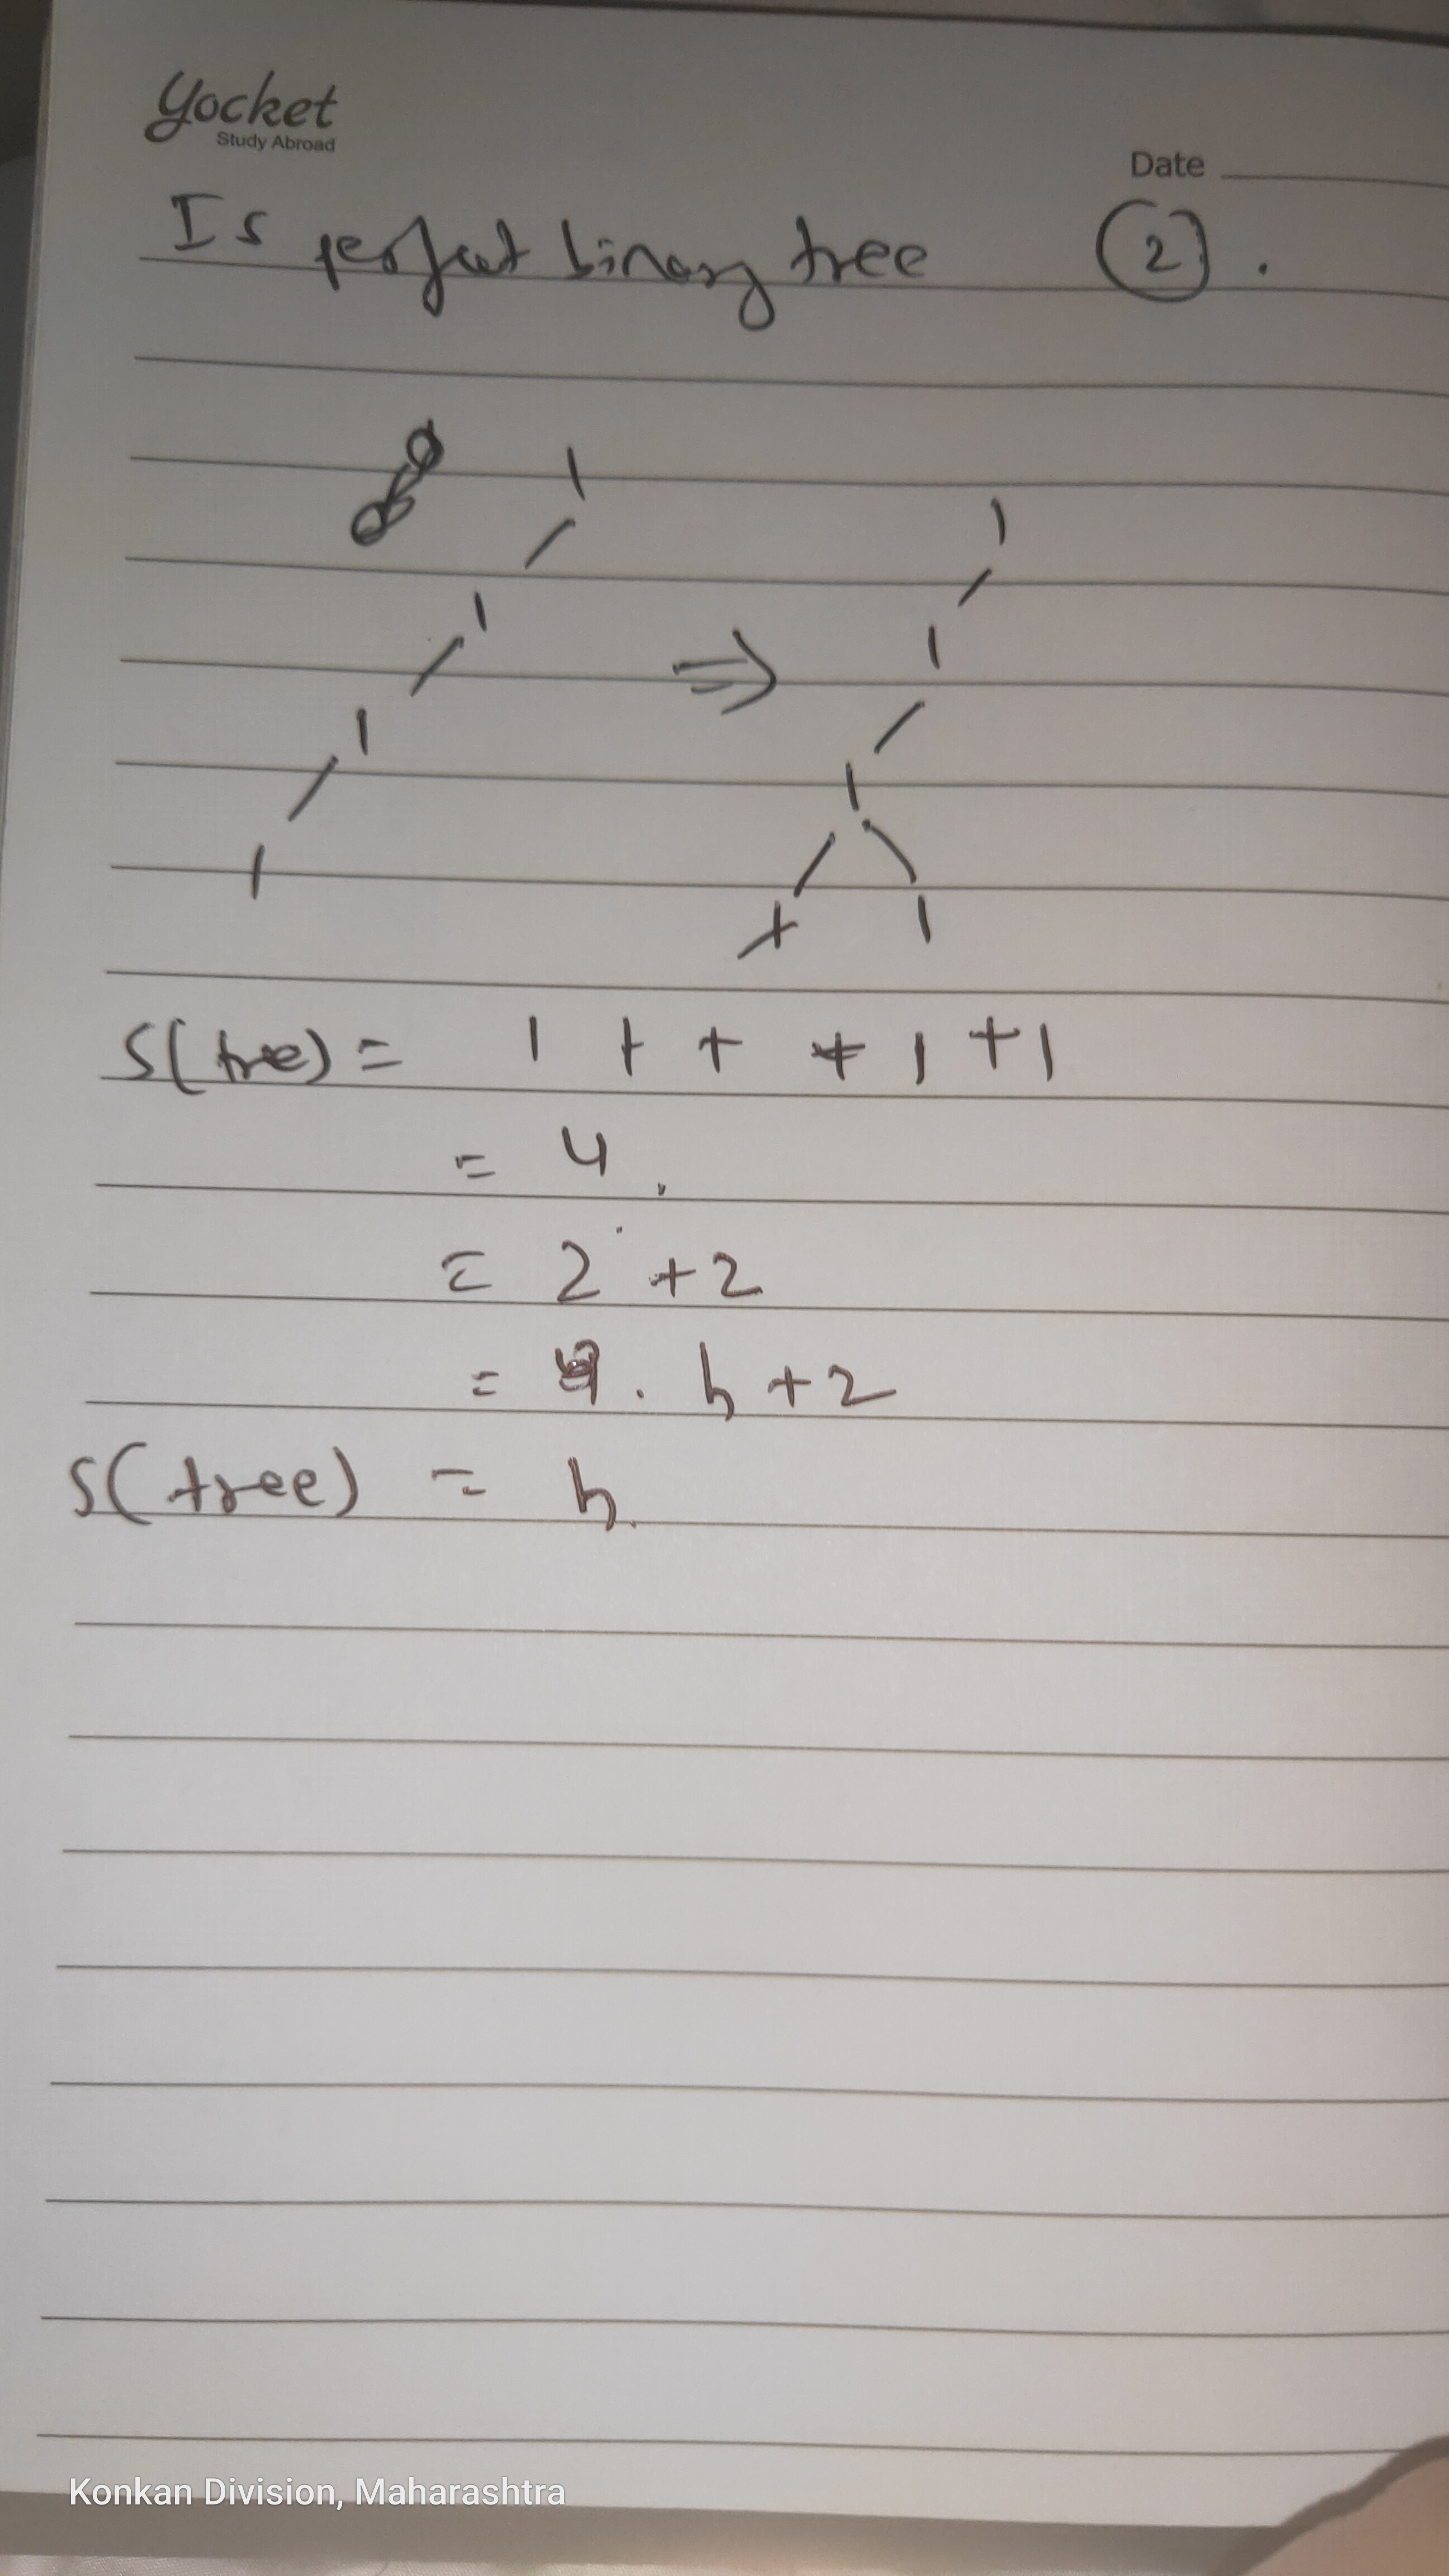 Yocket
Study Abroad
Date
Is perfect binary tree (2).
1 1
1 ⇒ 1
1 1
1 1
S(tree) = 1 + + + 1 + 1
= 4.
= 2 + 2
= . h + 2
S(tree) = h.
Konkan Division, Maharashtra